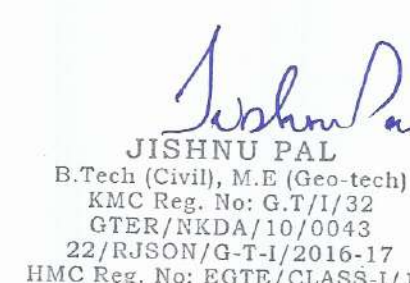 JISHNU PAL
B.Tech (Civil), M.E (Geo-tech)
KMC Reg. No: G.T/I/32
GTER/NKDA/10/0043
22/RJSON/G-T-I/2016-17
HMC Reg. No: EGTE/CLASS-I/